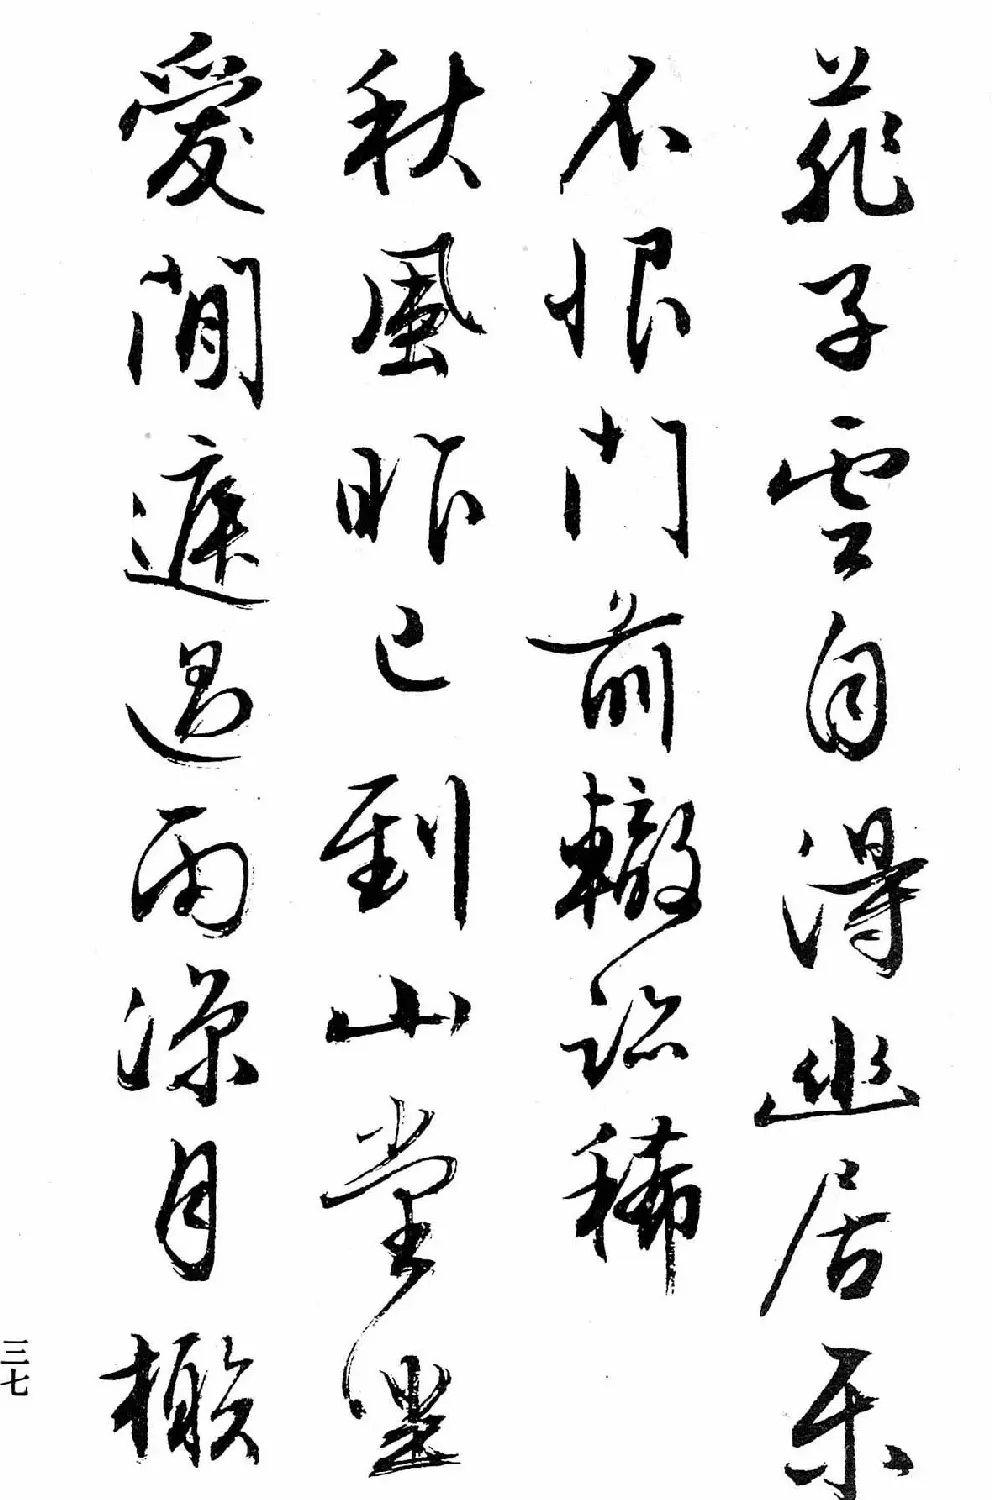 花子雲自得幽居樂
不恨門前轍跡稀
秋風昨已到山堂坐
愛閒遲過雨涼月
三七